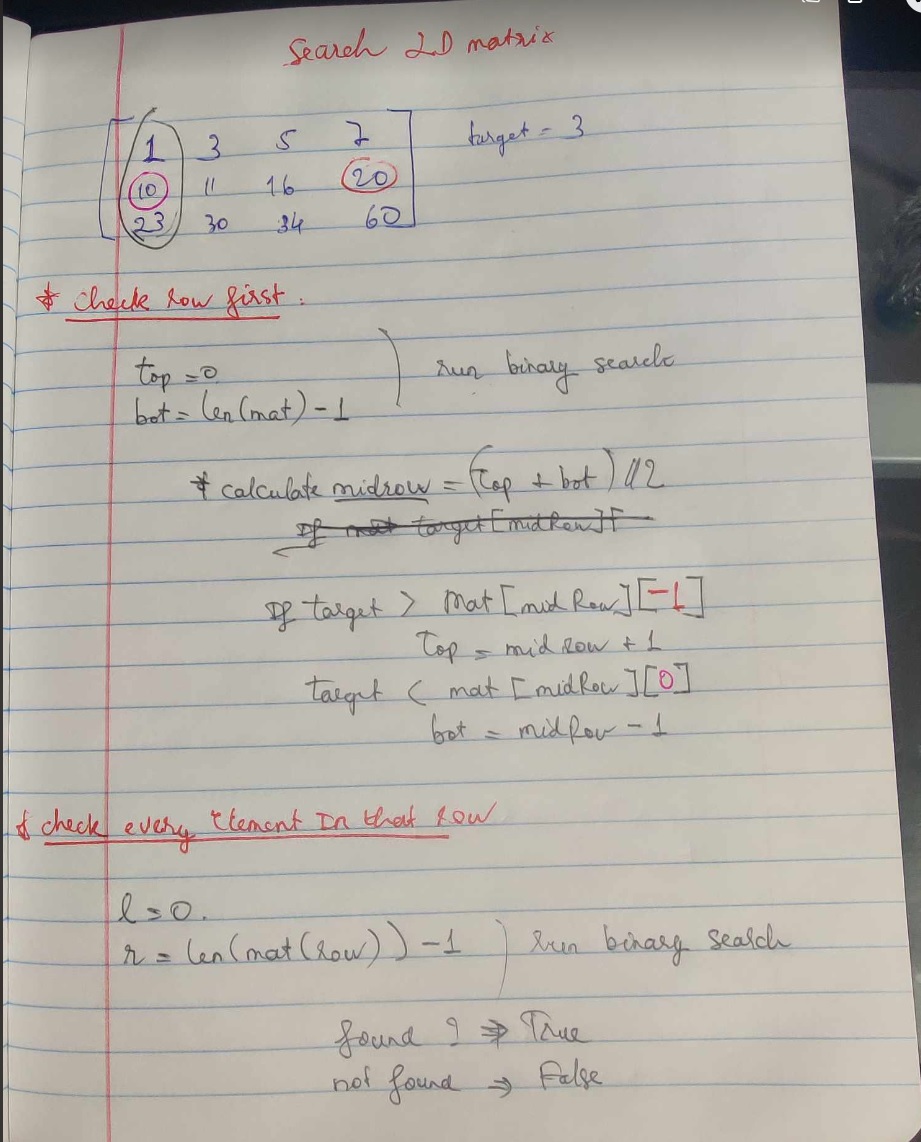 Search 2D matrix
1 3 5 7 target = 3
10 11 16 20
23 30 34 60
* check row first.
top = 0
bot = len(mat) - 1
run binary search
* calculate midrow = (Top + bot) // 2
If mat target[midRow][
If target > Mat[mid Row][-1]
Top = mid row + 1
target < mat [midRow][0]
bot = midRow - 1
* check every Element In that Row
l = 0.
r = len(mat(row)) - 1 Run binary search
found ? ⇒ True
not found ⇒ False